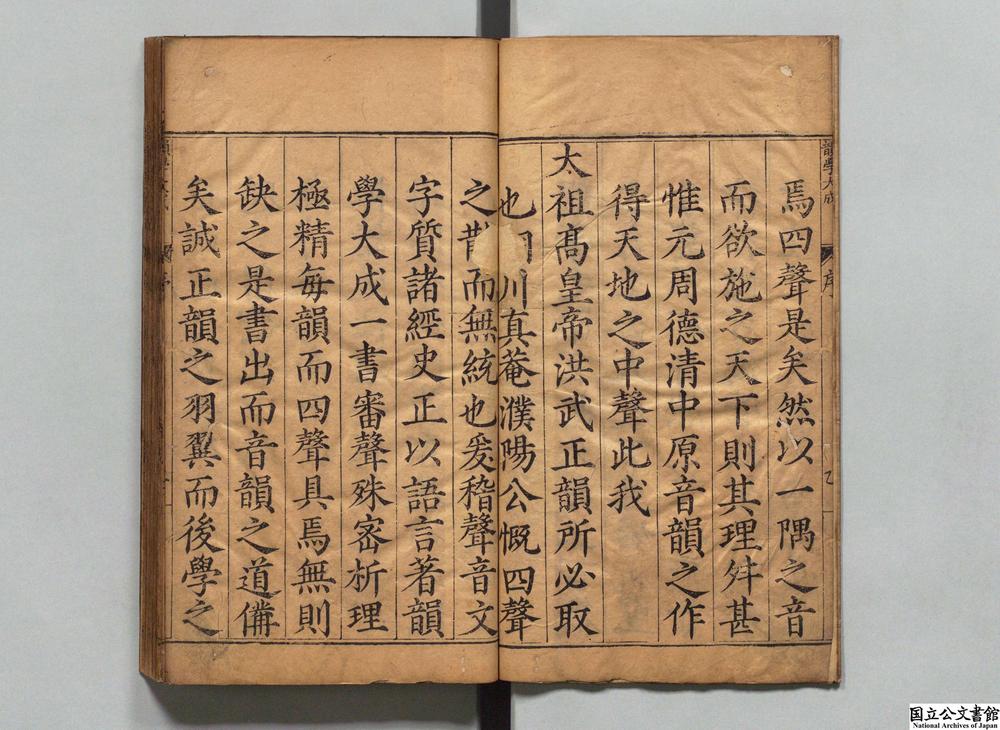 韻學大成
序
焉四聲是矣然以一隅之音
而欲施之天下則其理舛甚
惟元周德清中原音韻之作
得天地之中聲此我
太祖髙皇帝洪武正韻所必取
也 川真菴濮陽公慨四聲
之散而無統也爰稽聲音文
字質諸經史正以語言著韻
學大成一書審聲殊宻析理
極精每韻而四聲具焉無則
缺之是書出而音韻之道備
矣誠正韻之羽翼而後學之
国立公文書館
National Archives of Japan